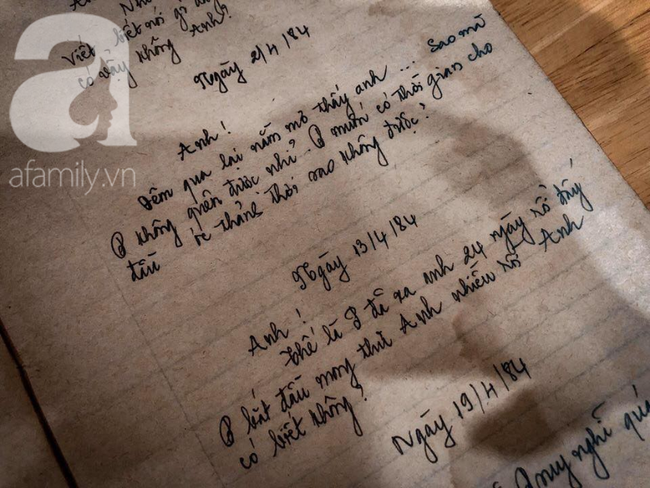 Viết biết nói gì
có vậy không Anh?
Ngày 2/4/84
a
afamily.vn
Anh!
Đêm qua lại nằm mơ thấy anh... Sao mà
P không quên được nhỉ. P muốn có thời gian cho
đầu óc thảnh thơi sao không được?
Ngày 13/4/84
Anh!
Thế là P đã xa anh 24 ngày rồ đấy
P bắt đầu mong thư Anh nhiều rồi Anh
có biết không?
Ngày 19/4/84
suy nghĩ quá